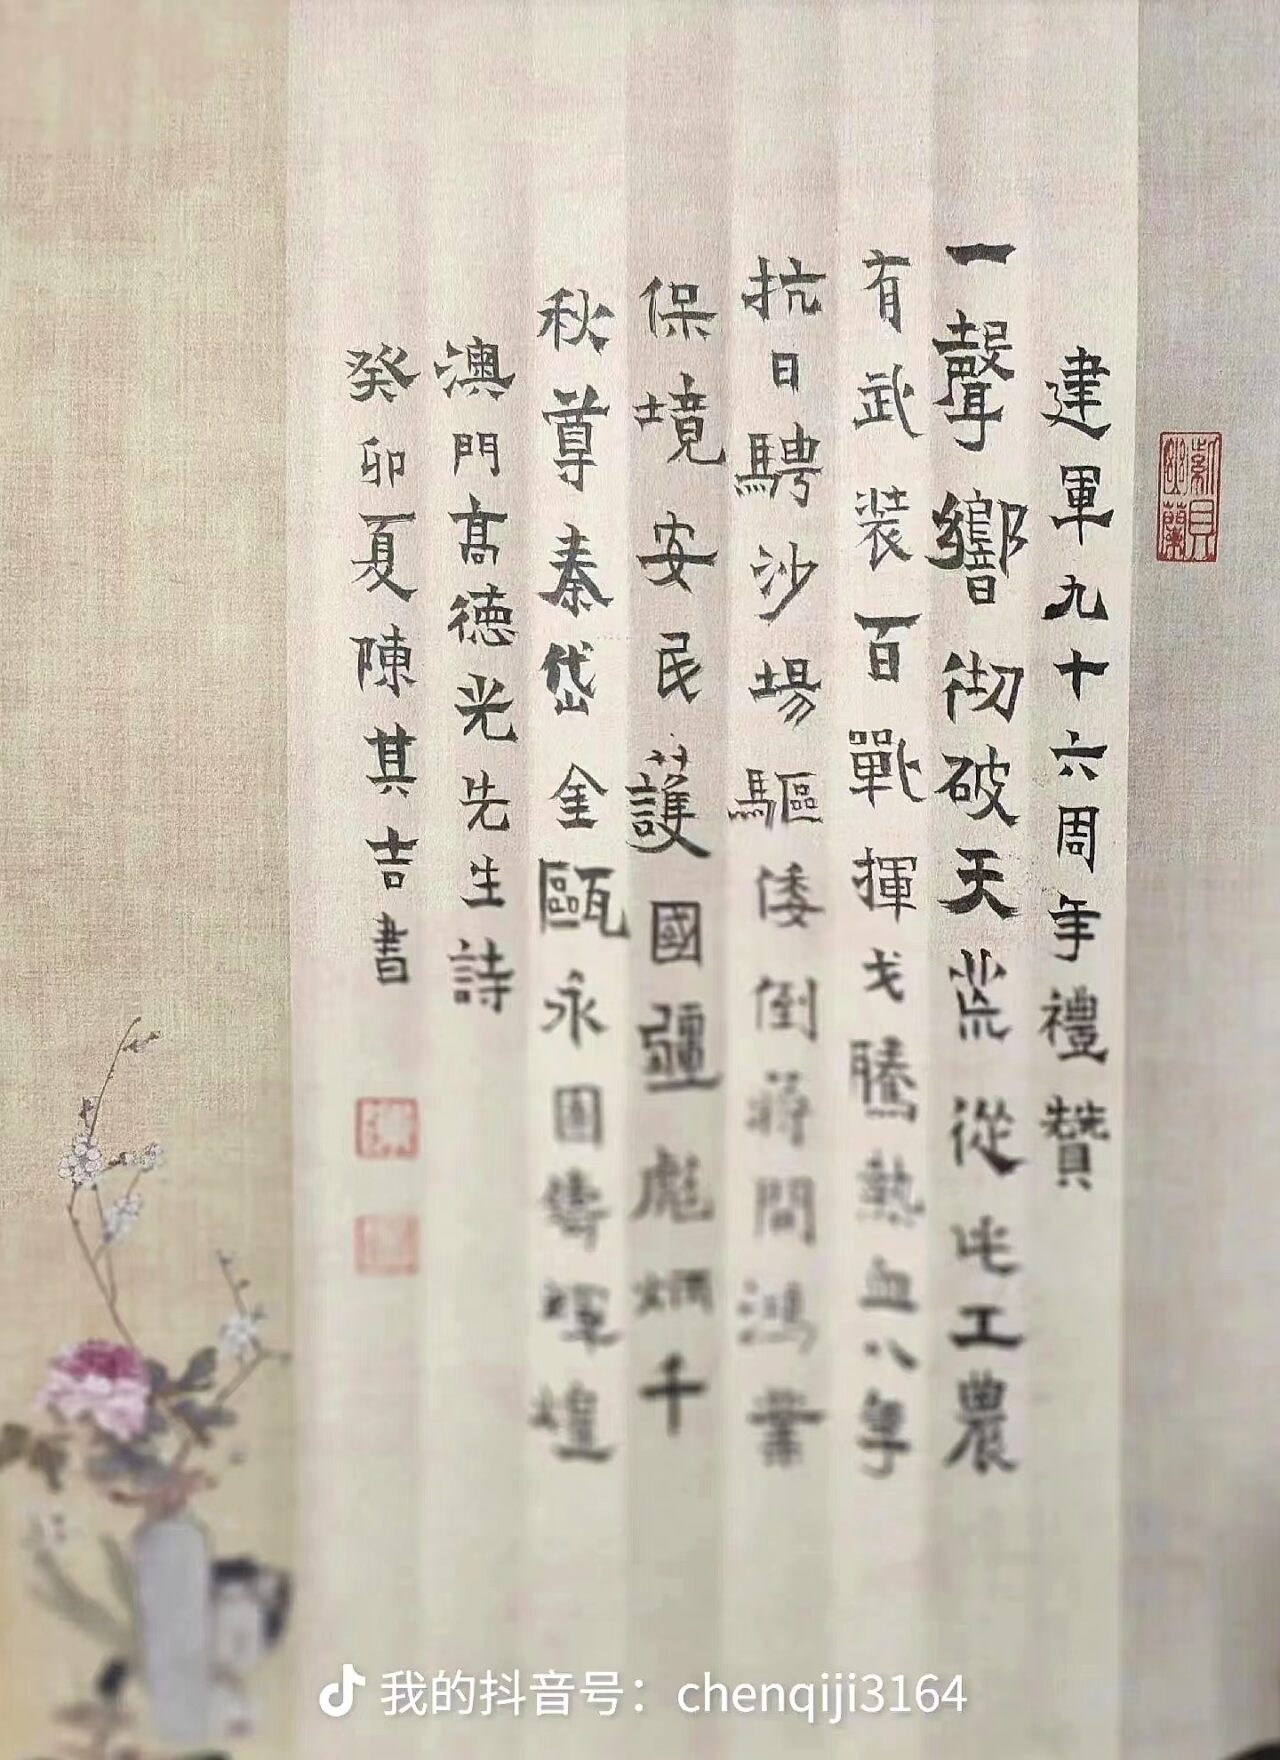 建軍九十六周年禮贊
一聲響彻破天荒從此工農
有武装百戰揮戈騰熱血八年
抗日騁沙場驅倭倒蔣開鴻業
保境安民護國疆彪炳千
秋尊泰岱金甌永固鑄輝煌
澳門高德光先生詩
癸卯夏陳其吉書
我的抖音号：chenqiji3164